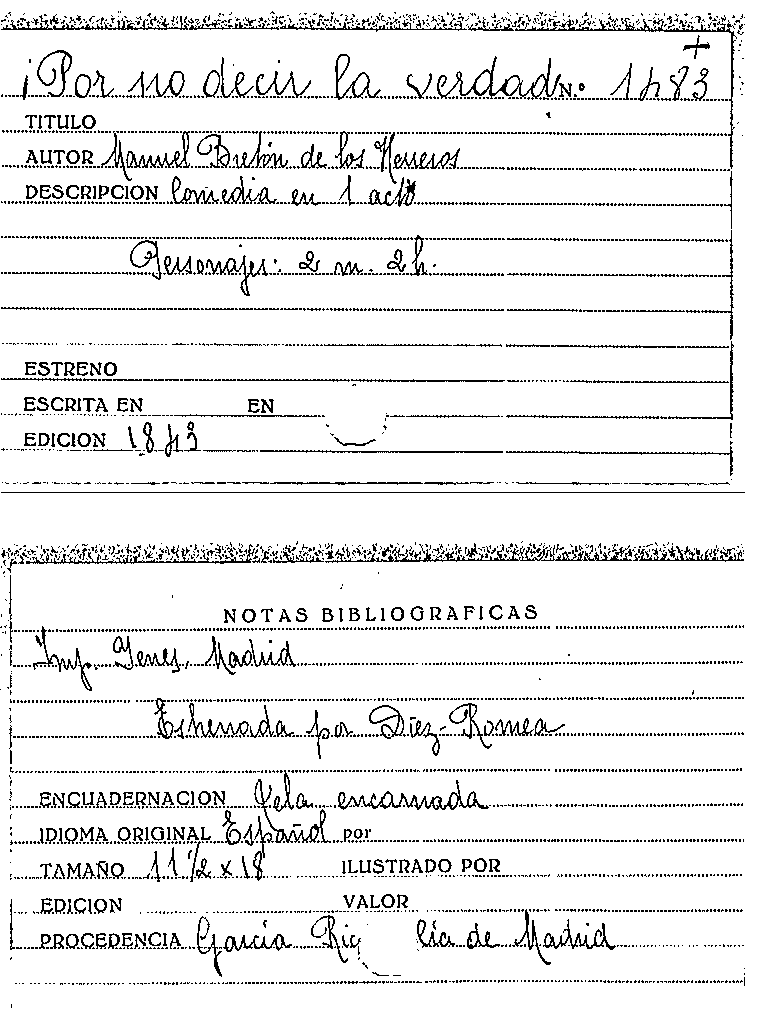 +
¡Por no decir la verdad N.º 1483
TITULO
AUTOR Manuel Bretón de los Herreros
DESCRIPCION Comedia en 1 acto
Personajes: 2 m. 2 h.
ESTRENO
ESCRITA EN EN
EDICION 1843
NOTAS BIBLIOGRAFICAS
Imp. Yenes. Madrid
Estrenada por Díez-Romea
ENCUADERNACION Tela encarnada
IDIOMA ORIGINAL Español por
TAMAÑO 11 1/2 x 18 ILUSTRADO POR
EDICION VALOR
PROCEDENCIA García Rig cía de Madrid